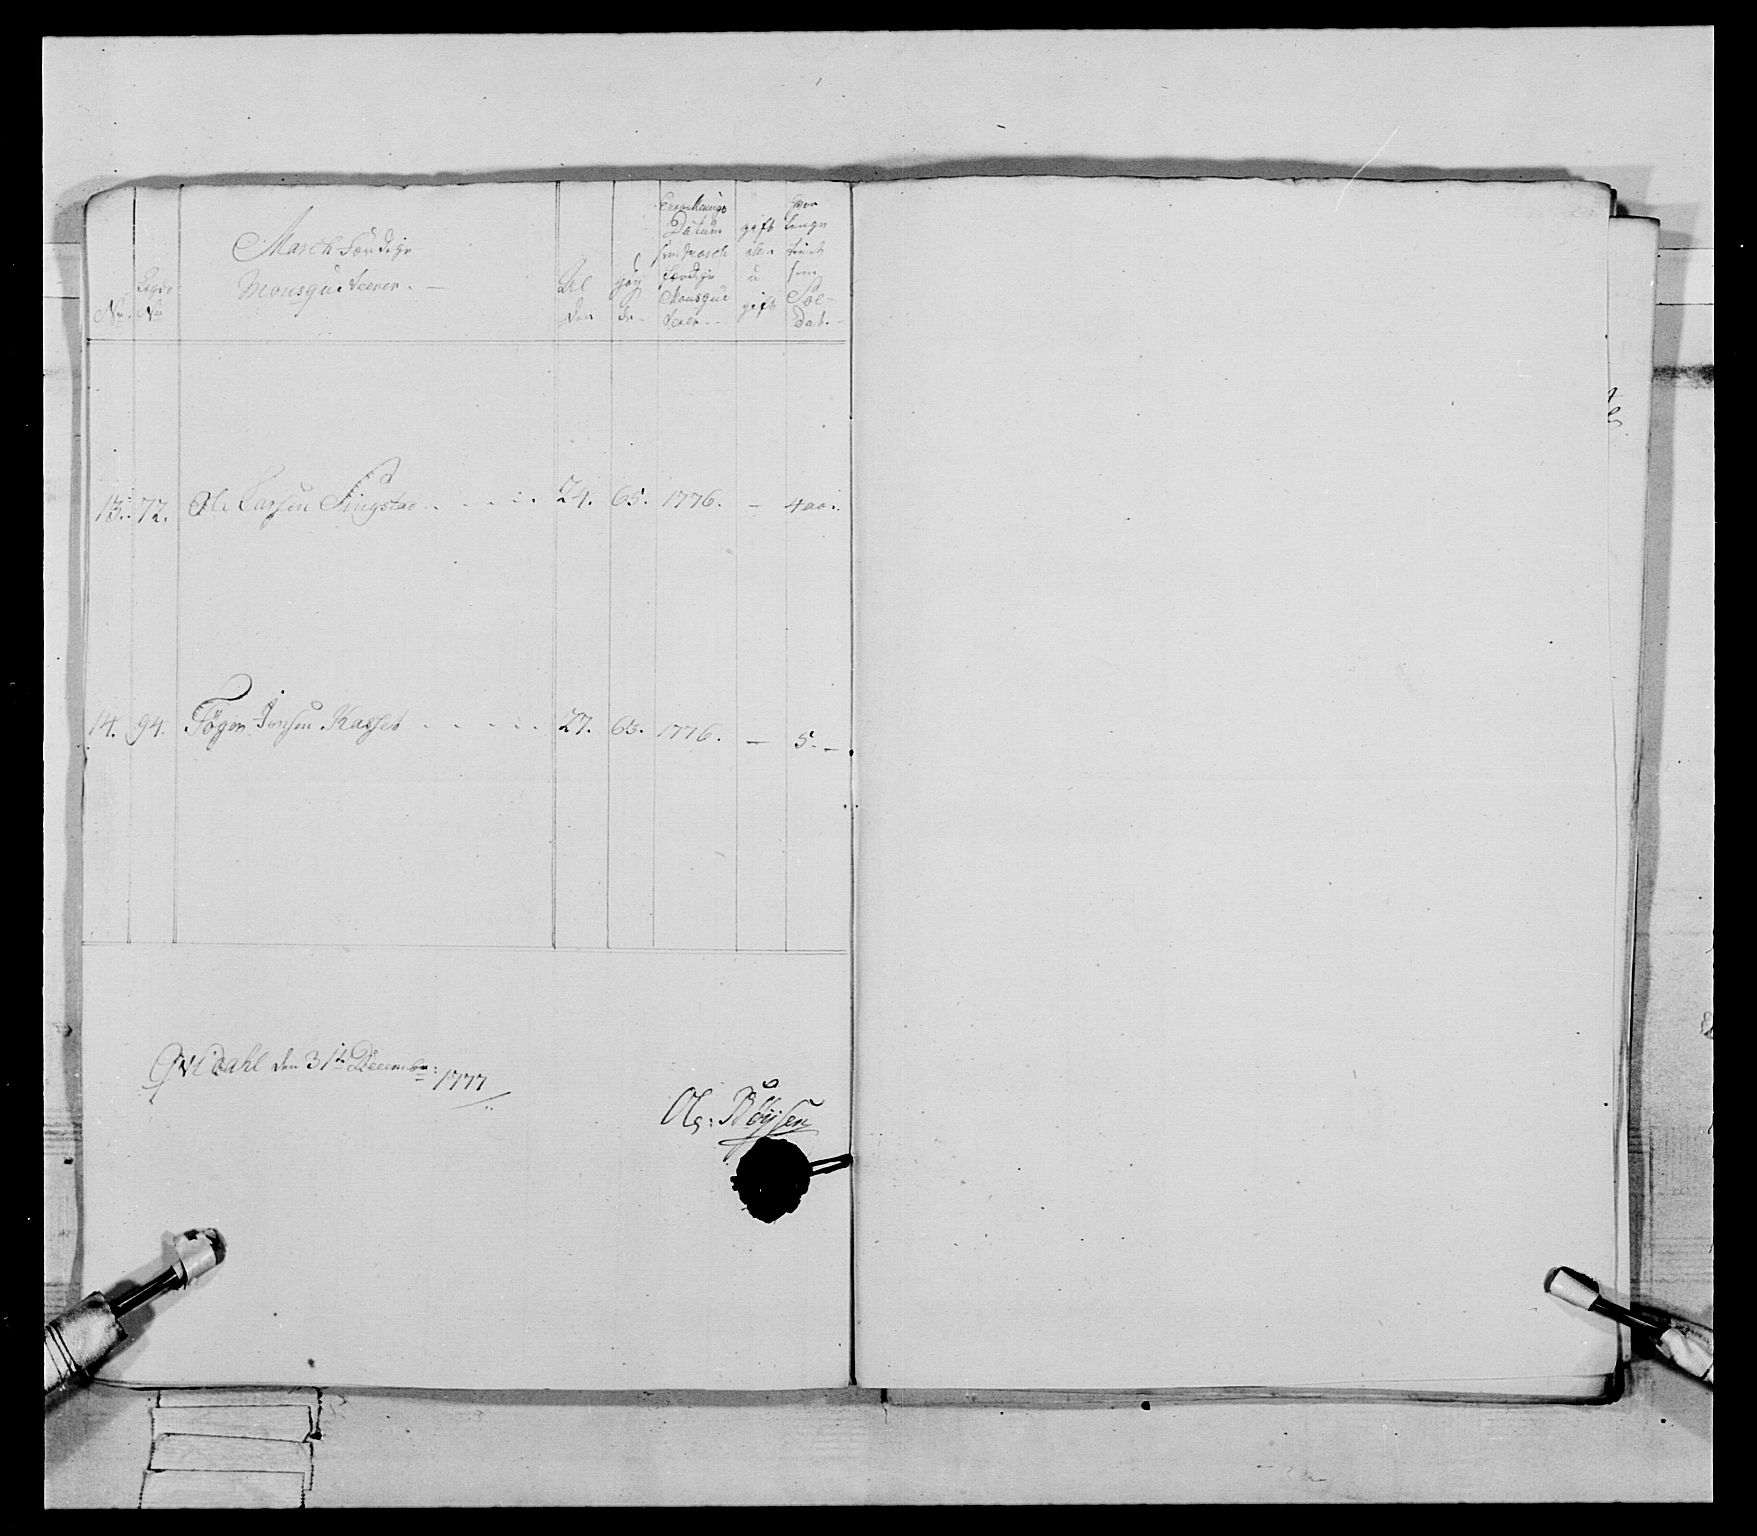 No.
Legds
No
March Færdige
Mousqueteerer. —
Al
der
høy
de
Datum
som March
Færdige
Mousque
teerer
gift
eller
u
gift
hvor
lenge
tient
som
Sol-
dat.
13. 72. Ole Larsen Singstad . . . . . 24. 65. 1776. — 4 aar.
14. 94. Jonsen Kasset . . . . . 27. 65. 1776. — 5. —
den 31te Decembr: 1777
Ols: Bøysen